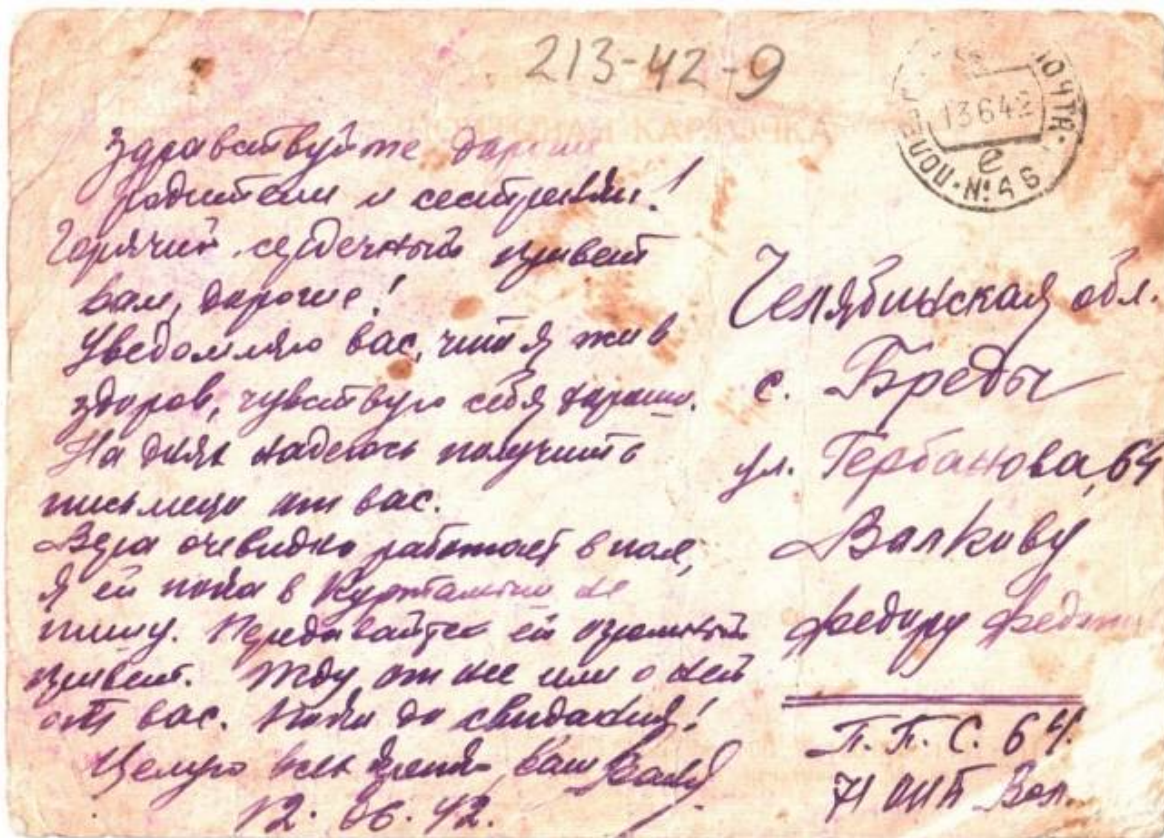 213-42-9
ПОЧТОВАЯ КАРТОЧКА
ПОЧТА
13 6 42
е
№ 46
Здравствуйте дорогие
родители и сестренки!
Горячий сердечный привет
вам, дорогие!
Уведомляю вас, что я жив
здоров, чувствую себя хорошо.
На днях надеюсь получить
письмецо от вас.
Вера очевидно работает в поле,
я ей пока в Куртамыш не
пишу. Передавайте ей огромный
привет. Жду от нее или о ней
от вас. Пока до свидания!
Целую всех ваш
12. 06. 42.
Челябинская обл.
с. Бреды
ул. Гербанова, 64
Валкову
Федору
П.П.С. 64.
71 Вал.